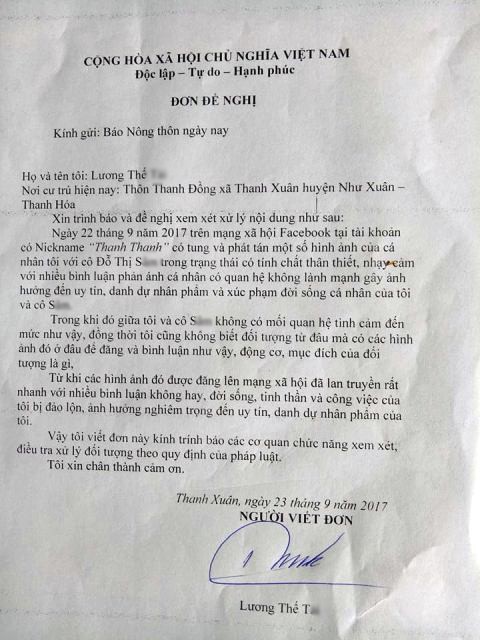 CỘNG HÒA XÃ HỘI CHỦ NGHĨA VIỆT NAM
Độc lập – Tự do – Hạnh phúc
ĐƠN ĐỀ NGHỊ
Kính gửi: Báo Nông thôn ngày nay
Họ và tên tôi: Lương Thế
Nơi cư trú hiện nay: Thôn Thanh Đồng xã Thanh Xuân huyện Như Xuân –
Thanh Hóa
Xin trình báo và đề nghị xem xét xử lý nội dung như sau:
Ngày 22 tháng 9 năm 2017 trên mạng xã hội Facebook tại tài khoản
có Nickname “Thanh Thanh” có tung và phát tán một số hình ảnh của cá
nhân tôi với cô Đỗ Thị trong trạng thái có tính chất thân thiết, nhạy cảm
với nhiều bình luận phản ánh cá nhân có quan hệ không lành mạnh gây ảnh
hưởng đến uy tín, danh dự nhân phẩm và xúc phạm đời sống cá nhân của tôi
và cô
Trong khi đó giữa tôi và cô không có mối quan hệ tình cảm đến
mức như vậy, đồng thời tôi cũng không biết đối tượng từ đâu mà có các hình
ảnh đó ở đâu để đăng và bình luận như vậy, động cơ, mục đích của đối
tượng là gì,
Từ khi các hình ảnh đó được đăng lên mạng xã hội đã lan truyền rất
nhanh với nhiều bình luận không hay, đời sống, tinh thần và công việc của
tôi bị đảo lộn, ảnh hưởng nghiêm trọng đến uy tín, danh dự nhân phẩm của
tôi.
Vậy tôi viết đơn này kính trình báo các cơ quan chức năng xem xét,
điều tra xử lý đối tượng theo quy định của pháp luật.
Tôi xin chân thành cảm ơn.
Thanh Xuân, ngày 23 tháng 9 năm 2017
NGƯỜI VIẾT ĐƠN
Lương Thế